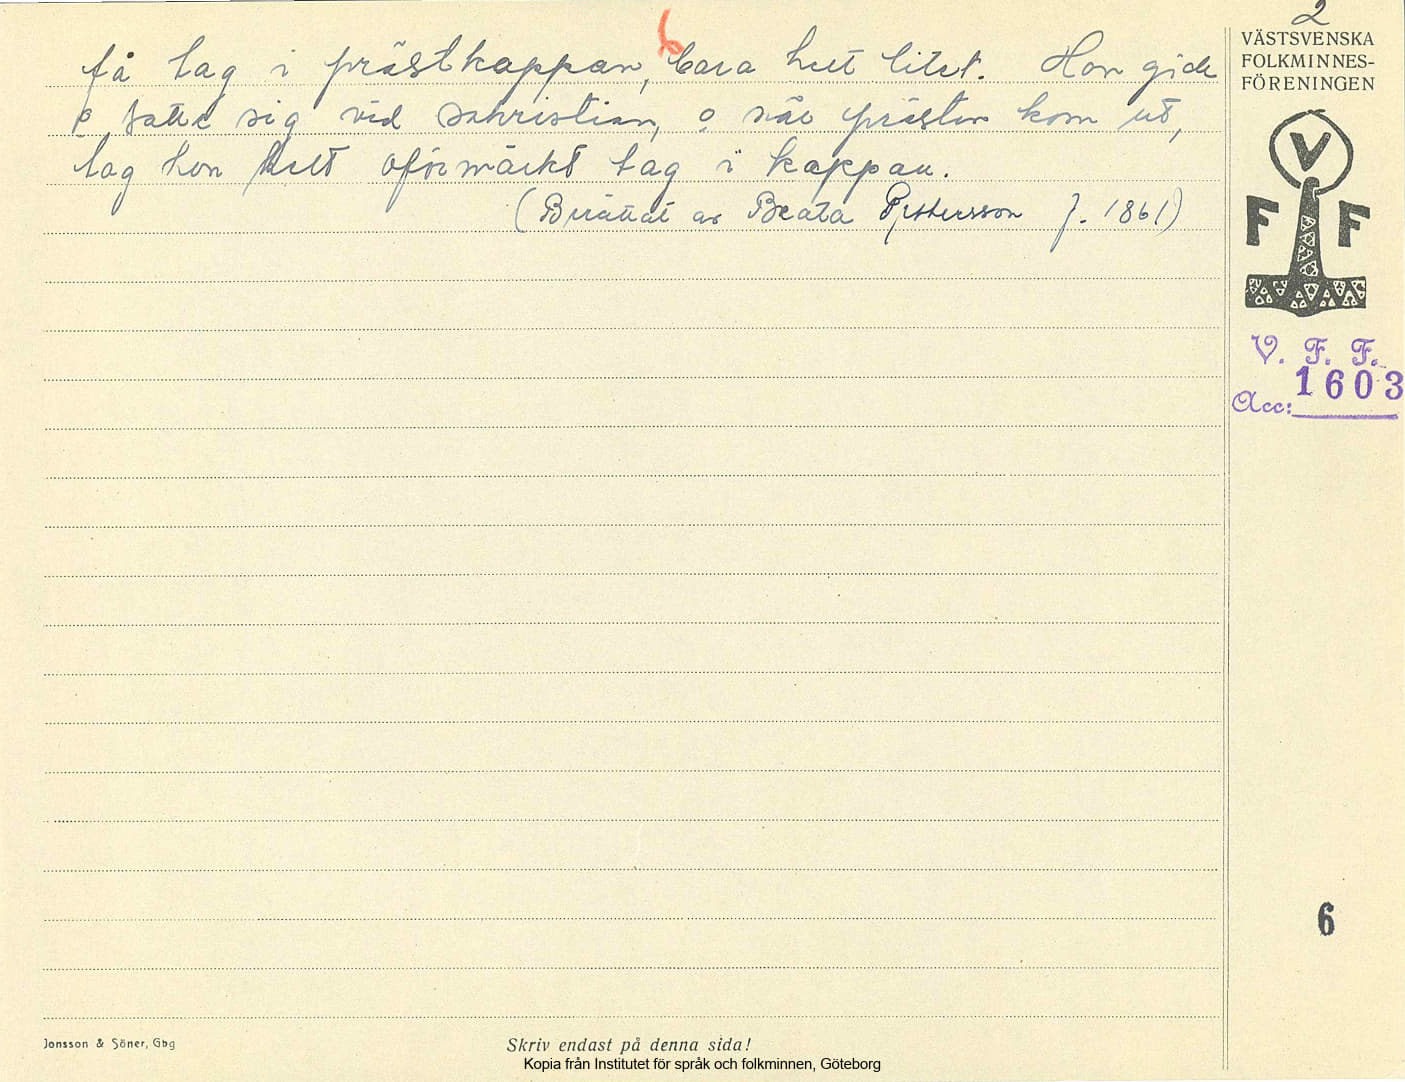 2
6
få tag i prästkappan, bara helt litet. Hon gick
o satte sig vid sakristian, o när prästen kom ut,
tog hon helt oförmärkt tag i kappan.
(Berättat av Beata Pettersson f. 1861)
VÄSTSVENSKA
FOLKMINNES-
FÖRENINGEN
V
F F
V. F. F.
Acc: 1603
6
Jonsson & Söner, Gbg
Skriv endast på denna sida!
Kopia från Institutet för språk och folkminnen, Göteborg